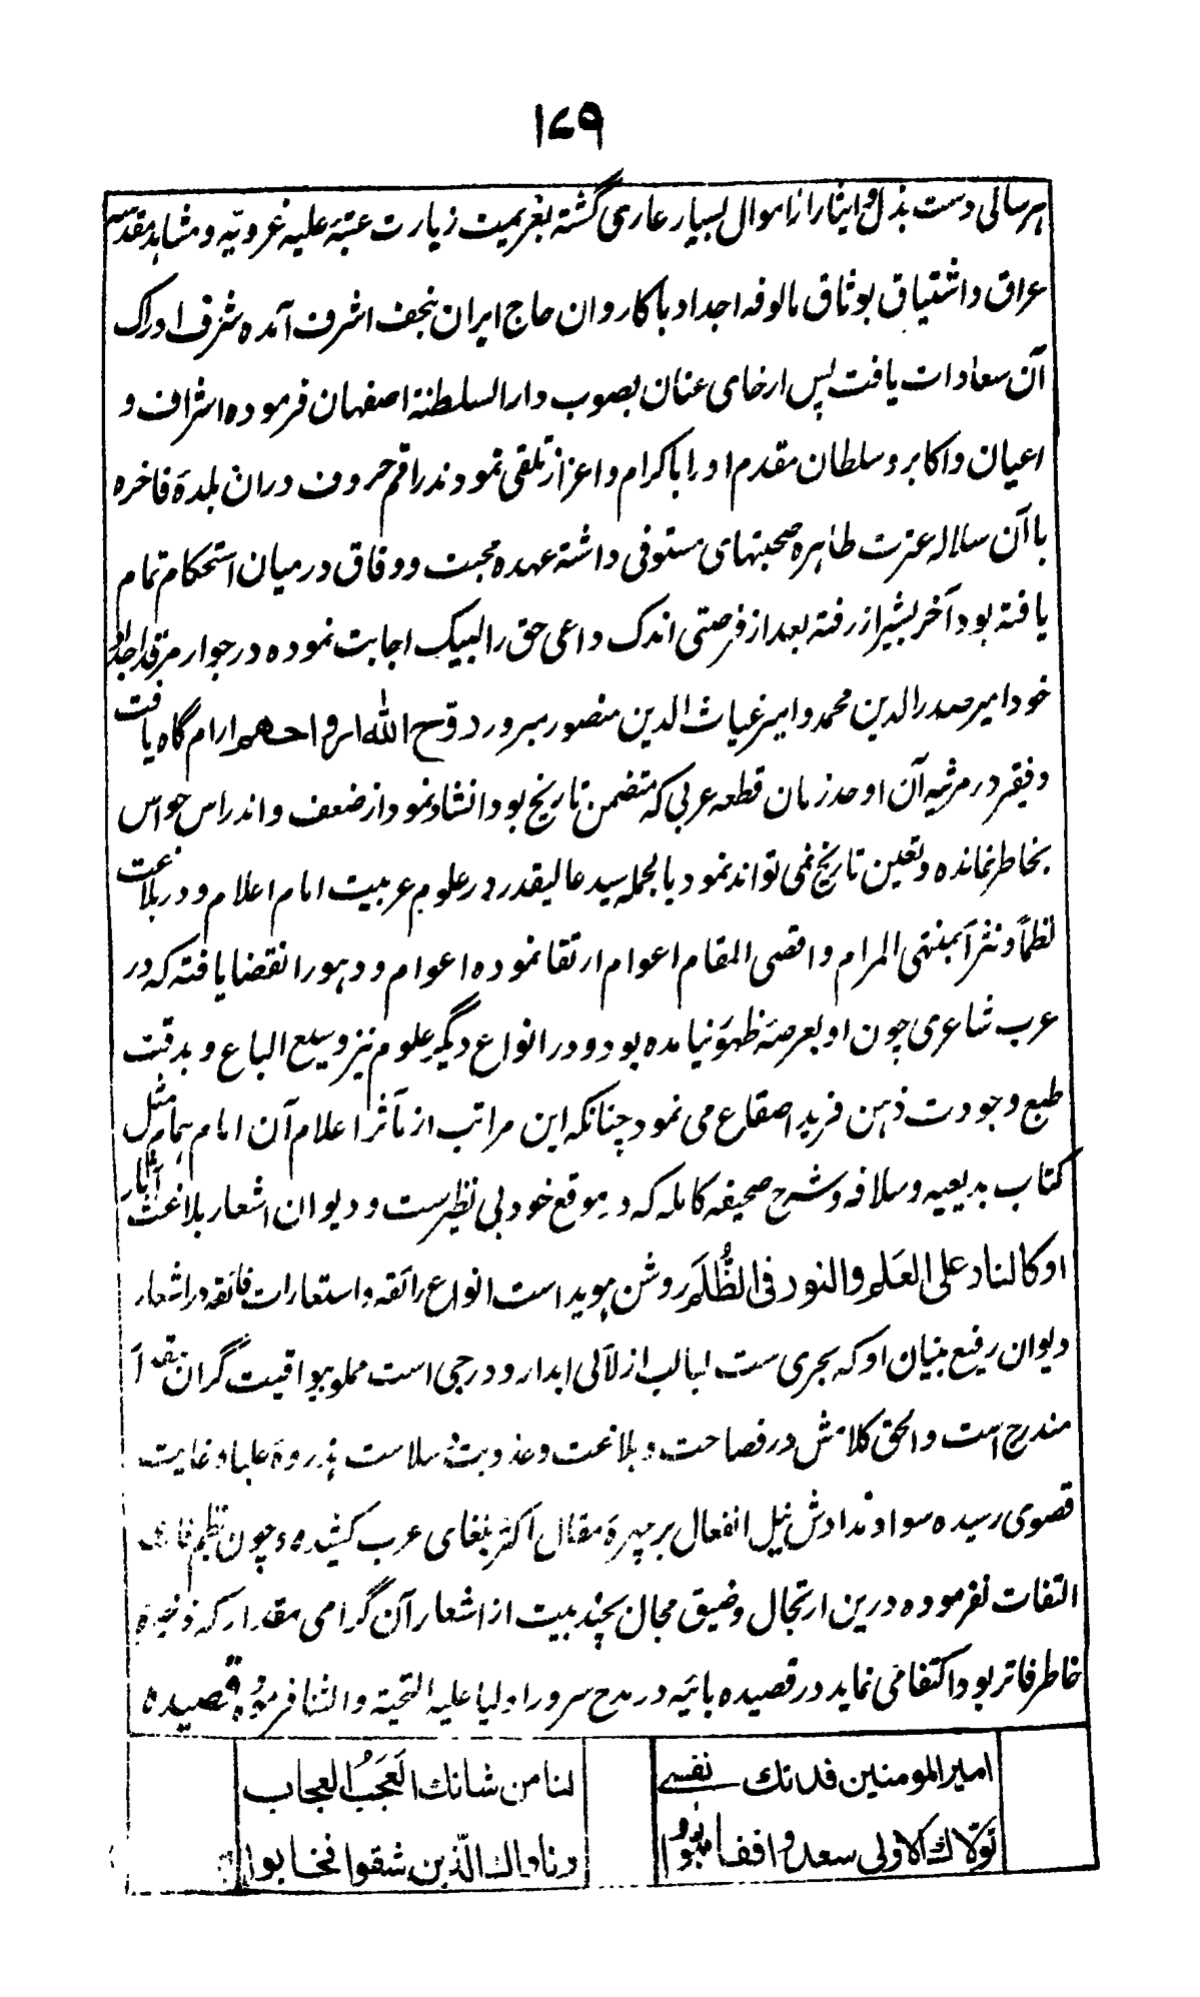 ۱۷۹
هر سالی دست بذل و ایثار از اموال بسیار عاری گشته بعزیمت زیارت عتبهٔ علیهٔ غرویّه و مشاهد مقدسهٔ
عراق و اشتیاق بوثاق مالوفه اجداد با کاروان حاج ایران بنجف اشرف آمده شرف ادراک
آن سعادات یافت پس ارخای عنان بصوب دارالسلطنة اصفهان فرموده اشراف و
اعیان و اکابر و سلطان مقدم او را باکرام و اعزاز تلقی نمودند راقم حروف دران بلدهٔ فاخره
با آن سلاله عترت طاهره صحبتهای مستوفی داشته عهده محبت و وفاق درمیان استحکام تمام
یافته بود آخر بشیراز رفته بعد از فرصتی اندک داعی حق را لبیک اجابت نموده در جوار مرقد اجداد
خود امیر صدرالدین محمد و امیر غیاث الدین منصور مبرور روّح الله ارواحهم ارام گاه یافت
و فقیر در مرثیه آن اوحد زمان قطعه عربی که متضمن تاریخ بود انشاد نمود از ضعف و اندراس حواس
بخاطر نمانده و تعین تاریخ نمی تواند نمود بالجمله سید عالیقدر در علوم عربیت امام اعلام و در بلاغت
نظماً و نثراً بمنتهی المرام و اقصی المقام اعوام ارتقا نموده اعوام و دهور انقضا یافته که در
عرب شاعری چون او بعرصهٔ ظهور نیامده بود و در انواع دیگر علوم نیز وسیع الباع و بدقت
طبع وجودت ذهن فرید اصقاع می نمود چنانکه این مراتب از مآثر اعلام آن امام همام مثل
کتاب بدیعیه و سلافه و شرح صحیفه کامله که در موقع خود بی نظیرست و دیوان اشعار بلاغت آثار
او کالنار علی العَلَم والنور فی الظُّلَم روشن هویدا است انواع رائقه و استعارات فائقه در اشعار
دیوان رفیع بنیان او که بحری ست لبالب از لآلی ابدار و درجی است مملو بیواقیت گران
مندرج است و الحق کلامش در فصاحت و بلاغت و عذوبت و سلاست بذروهٔ علیا و غایت
قصوی رسیده سواد مدادش نیل انفعال بر چهرهٔ مقال اکثر بلغای عرب کشیده و چون نظم
التفات نفرموده درین ارتجال و ضیق مجال بچند بیت از اشعار آن گرامی مقدار که ذخیرهٔ
خاطر فاتر بود اکتفا می نماید در قصیده بائیه در مدح سرور اولیا علیه التحیة والثنا فرموده قصیده
امیر المومنین فدتك نفسی لنا من شانك العَجَبُ العجاب
تولّاك الاولی سعدوا ففازوا وناواك الّذین شقوا فخابوا